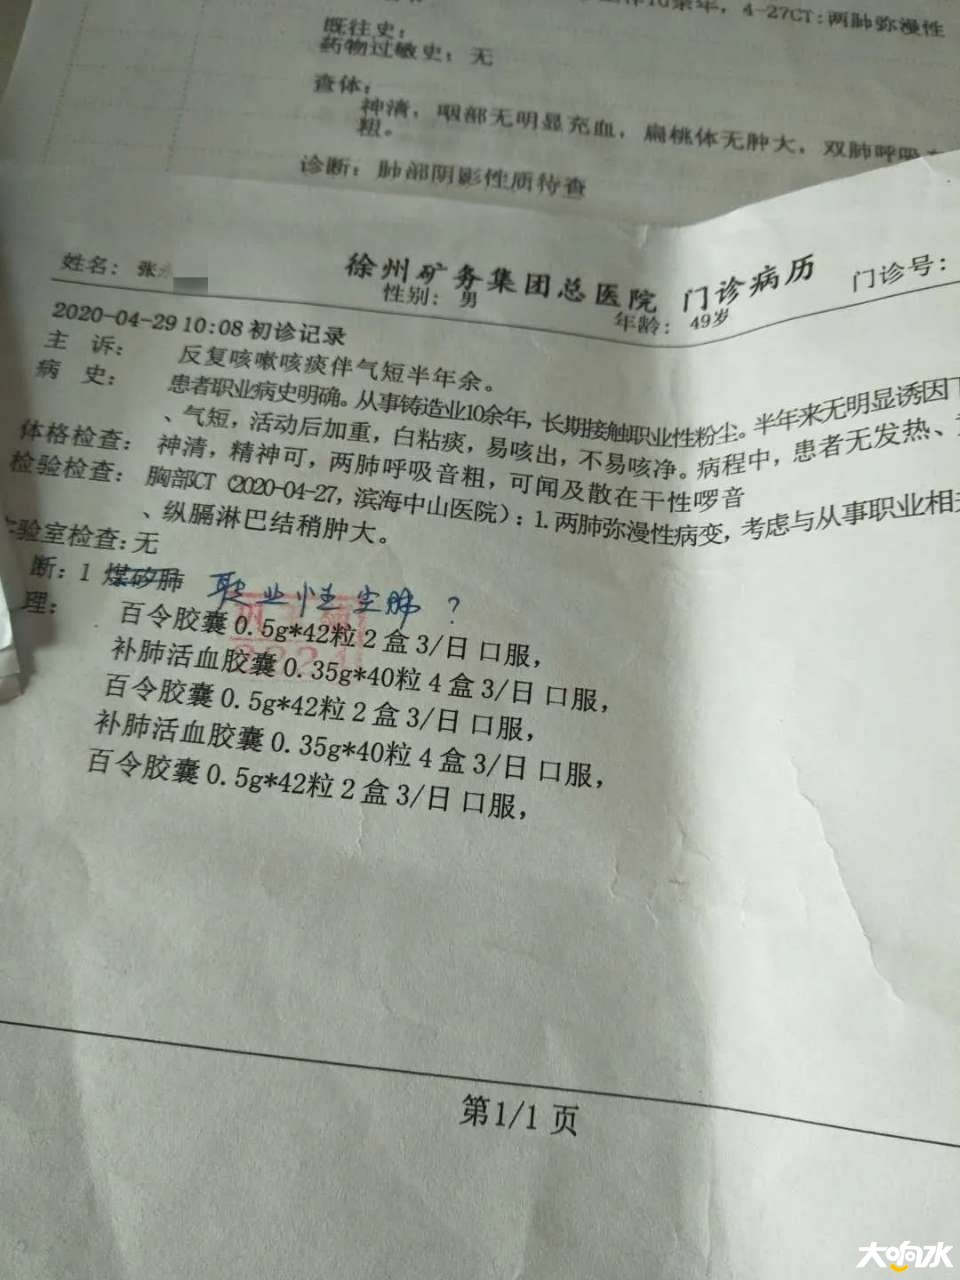 作10余年，4-27CT:两肺弥漫性
既往史：
药物过敏史：无
查体：
神清，咽部无明显充血，扁桃体无肿大，双肺呼吸
粗。
诊断：肺部阴影性质待查
徐州矿务集团总医院 门诊病历
姓名：张 性别：男 年龄：49岁 门诊号：
2020-04-29 10:08 初诊记录
主 诉： 反复咳嗽咳痰伴气短半年余。
病 史： 患者职业病史明确。从事铸造业10余年，长期接触职业性粉尘。半年来无明显诱因
、气短，活动后加重，白粘痰，易咳出，不易咳净。病程中，患者无发热、
体格检查： 神清，精神可，两肺呼吸音粗，可闻及散在干性啰音
检验检查： 胸部CT（2020-04-27，滨海中山医院）：1.两肺弥漫性病变，考虑与从事职业相
、纵膈淋巴结稍肿大。
验室检查：无
断：1 煤矽肺 职业性尘肺？
理：
百令胶囊 0.5g*42粒 2 盒 3/日 口服，
补肺活血胶囊 0.35g*40粒 4 盒 3/日 口服，
百令胶囊 0.5g*42粒 2 盒 3/日 口服，
补肺活血胶囊 0.35g*40粒 4 盒 3/日 口服，
百令胶囊 0.5g*42粒 2 盒 3/日 口服，
第1/1 页
大响水